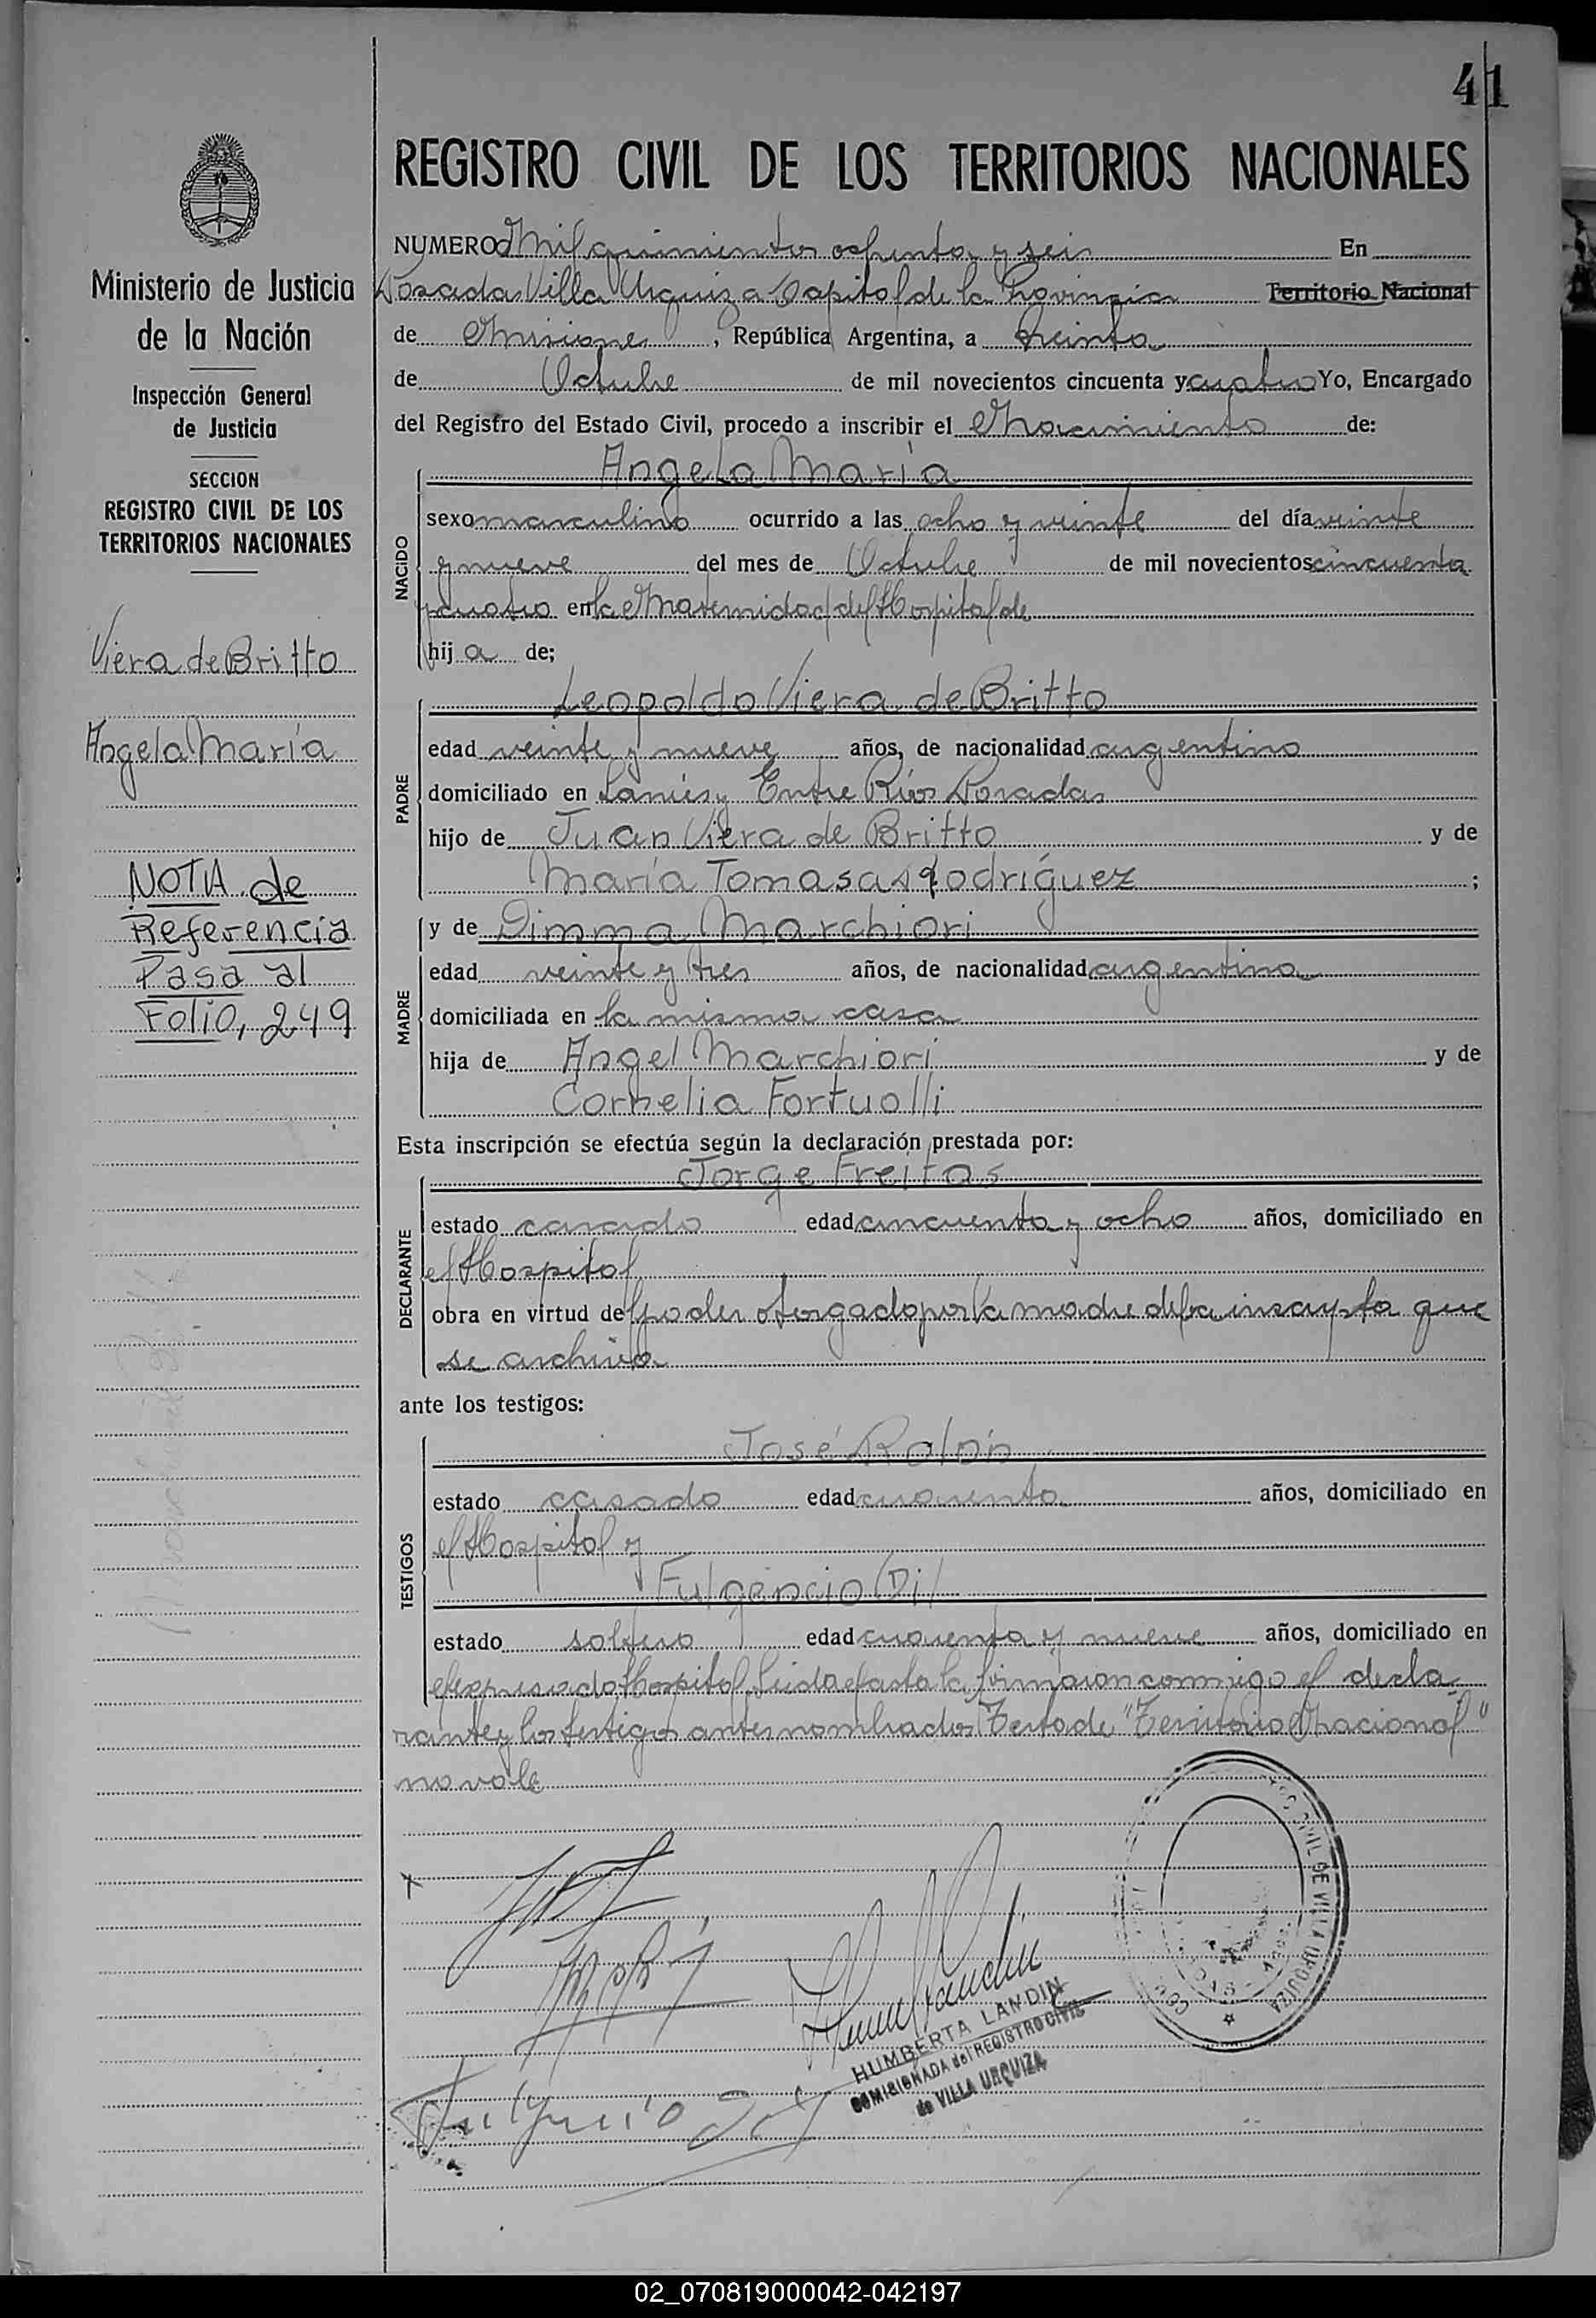 41
REGISTRO CIVIL DE LOS TERRITORIOS NACIONALES
Ministerio de Justicia
de la Nación
Inspección General
de Justicia
SECCION
REGISTRO CIVIL DE LOS
TERRITORIOS NACIONALES
Viera de Britto
Angela María
NOTA de
Referencia
Pasa al
Folio, 249
NUMERO Mil quinientos ochenta y seis En
Posadas Villa Urquiza Capital de la Provincia Territorio Nacional
de Misiones, República Argentina, a treinta
de Octubre de mil novecientos cincuenta y cuatro Yo, Encargado
del Registro del Estado Civil, procedo a inscribir el Nacimiento de:
Angela María
NACIDO
sexo masculino ocurrido a las ocho y veinte del día veinte
y nueve del mes de Octubre de mil novecientos cincuenta
y cuatro en la Maternidad del Hospital de
hija de;
PADRE
Leopoldo Viera de Britto
edad veinte y nueve años, de nacionalidad argentino
domiciliado en Lanús y Entre Ríos Posadas
hijo de Juan Viera de Britto y de
María Tomasa Rodríguez ;
MADRE
y de Dimma Marchiori
edad veinte y tres años, de nacionalidad argentina
domiciliada en la misma casa
hija de Angel Marchiori y de
Cornelia Fortuolli
Esta inscripción se efectúa según la declaración prestada por:
DECLARANTE
Jorge Freitas
estado casado edad cincuenta y ocho años, domiciliado en
el Hospital
obra en virtud del poder otorgado por la madre de la inscripta que
se archiva
ante los testigos:
TESTIGOS
José Rolón
estado casado edad cuarenta años, domiciliado en
el Hospital y
Fulgencio Dil
estado soltero edad cuarenta y nueve años, domiciliado en
el expresado Hospital. Leida el acta la firmaron conmigo el decla
rante y los testigos antes nombrados Testado "Territorio Nacional"
no vale
HUMBERTA LANDIN
COMISIONADA del REGISTRO CIVIL
de VILLA URQUIZA
CIVIL DE VILLA URQUIZA
02_070819000042-042197